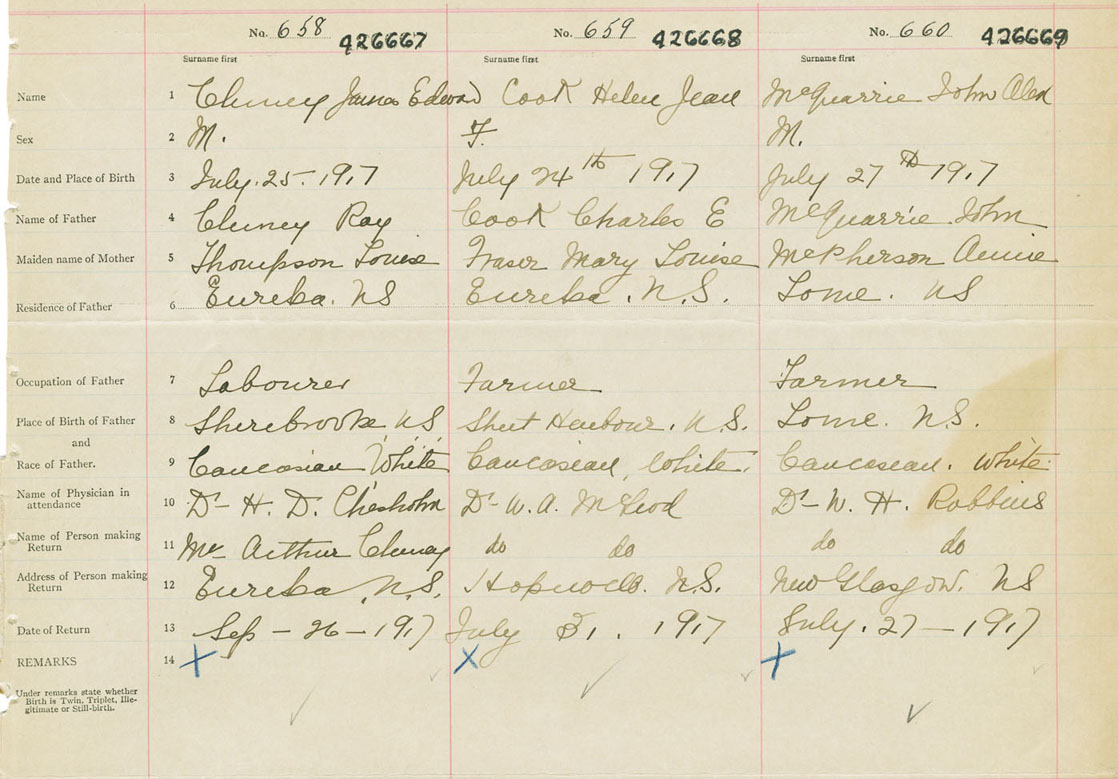 No. 658 426667 No. 659 426668 No. 660 426669
Surname first Surname first Surname first
Name 1 James Edward Cook Helen Jean McQuarrie John Alex
Sex 2 M. F. M.
Date and Place of Birth 3 July. 25. 1917 July 24th 1917 July 27th 1917
Name of Father 4 Ray Cook Charles E McQuarrie John
Maiden name of Mother 5 Thompson Louise Fraser Mary Louise McPherson Annie
Residence of Father 6 Eureka. NS Eureka. N.S. Lorne. NS
Occupation of Father 7 Labourer Farmer Farmer
Place of Birth of Father 8 Sherebrooke NS Sheet Harbour. N.S. Lorne. N.S.
and
Race of Father. 9 Caucasian White Caucasean, White. Caucasean. White.
Name of Physician in
attendance 10 Dr H. D. Chesholm Dr W. A. McLeod Dr W. H. Robbins
Name of Person making
Return 11 Arthur do do do do
Address of Person making
Return 12 Eureka, N.S. N.S. New Glasgow. NS
Date of Return 13 Sep - 26 - 1917 July 31. 1917 July. 27 - 1917
REMARKS 14 X X X
Under remarks state whether
Birth is Twin, Triplet, Ille-
gitimate or Still-birth.